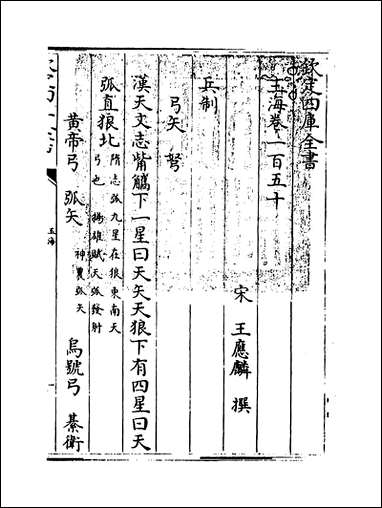 欽定四庫全書
玉海卷一百五十
宋 王應麟 撰
兵制
弓矢 弩
漢天文志觜觿下一星曰天矢天狼下有四星曰天
弧直狼北隋志弧九星在狼東南天
弓也 揚雄賦天弧發射
黃帝弓 弧矢神農弧矢 烏號弓 綦衛
玉海
一